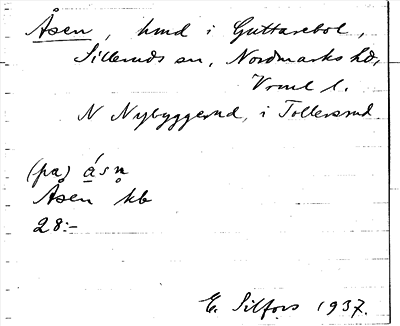 Åsen, hmd i Guttarebol,
Silleruds sn, Nordmarks hd,
Vrml l.
N Nybyggerud, i Tollersrud
(pa) ásn̥
Åsen kb
28:-
E. Silfors 1937.